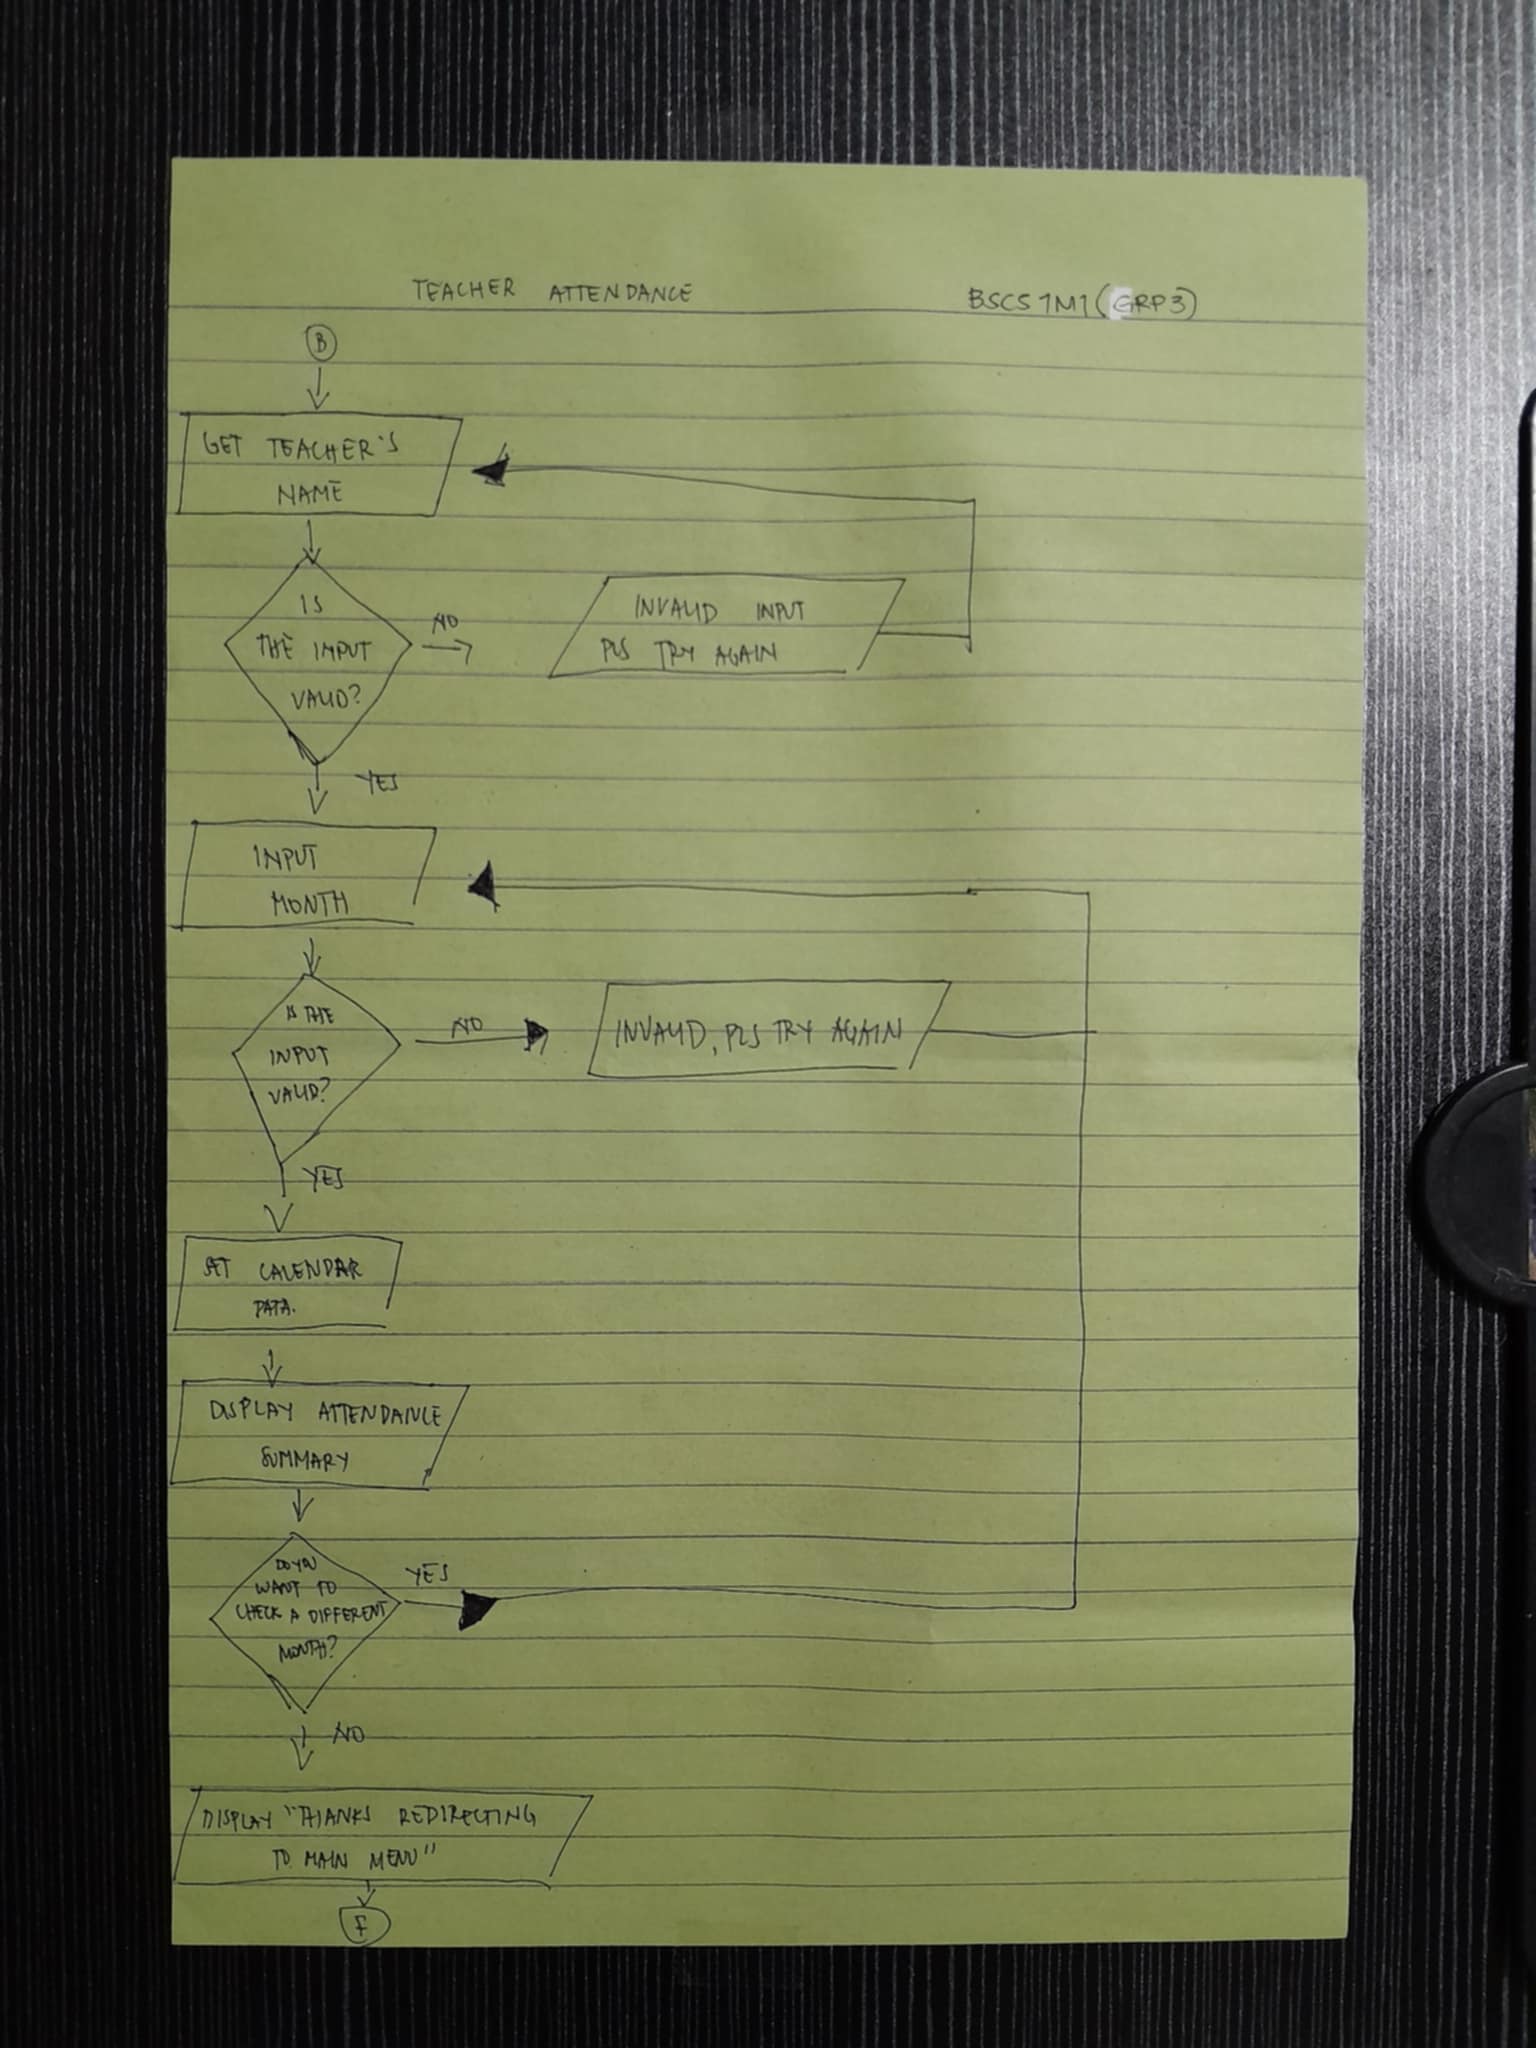 TEACHER ATTENDANCE
BSCS 1M1 (GRP3)
B
GET TEACHER'S
NAME
IS
THE INPUT
VALID?
NO
INVALID INPUT
PLS TRY AGAIN
YES
INPUT
MONTH
IS THE
INPUT
VALID?
NO
INVALID, PLS TRY AGAIN
YES
CALENDAR
DATA.
DISPLAY ATTENDANCE
SUMMARY
DO YOU
WANT TO
CHECK A DIFFERENT
MONTH?
YES
NO
DISPLAY "THANKS REDIRECTING
TO MAIN MENU"